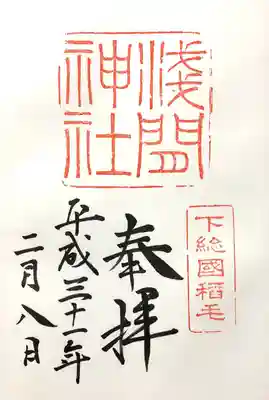 浅間
神社
下総國稲毛
奉拝
平成三十一年
二月八日